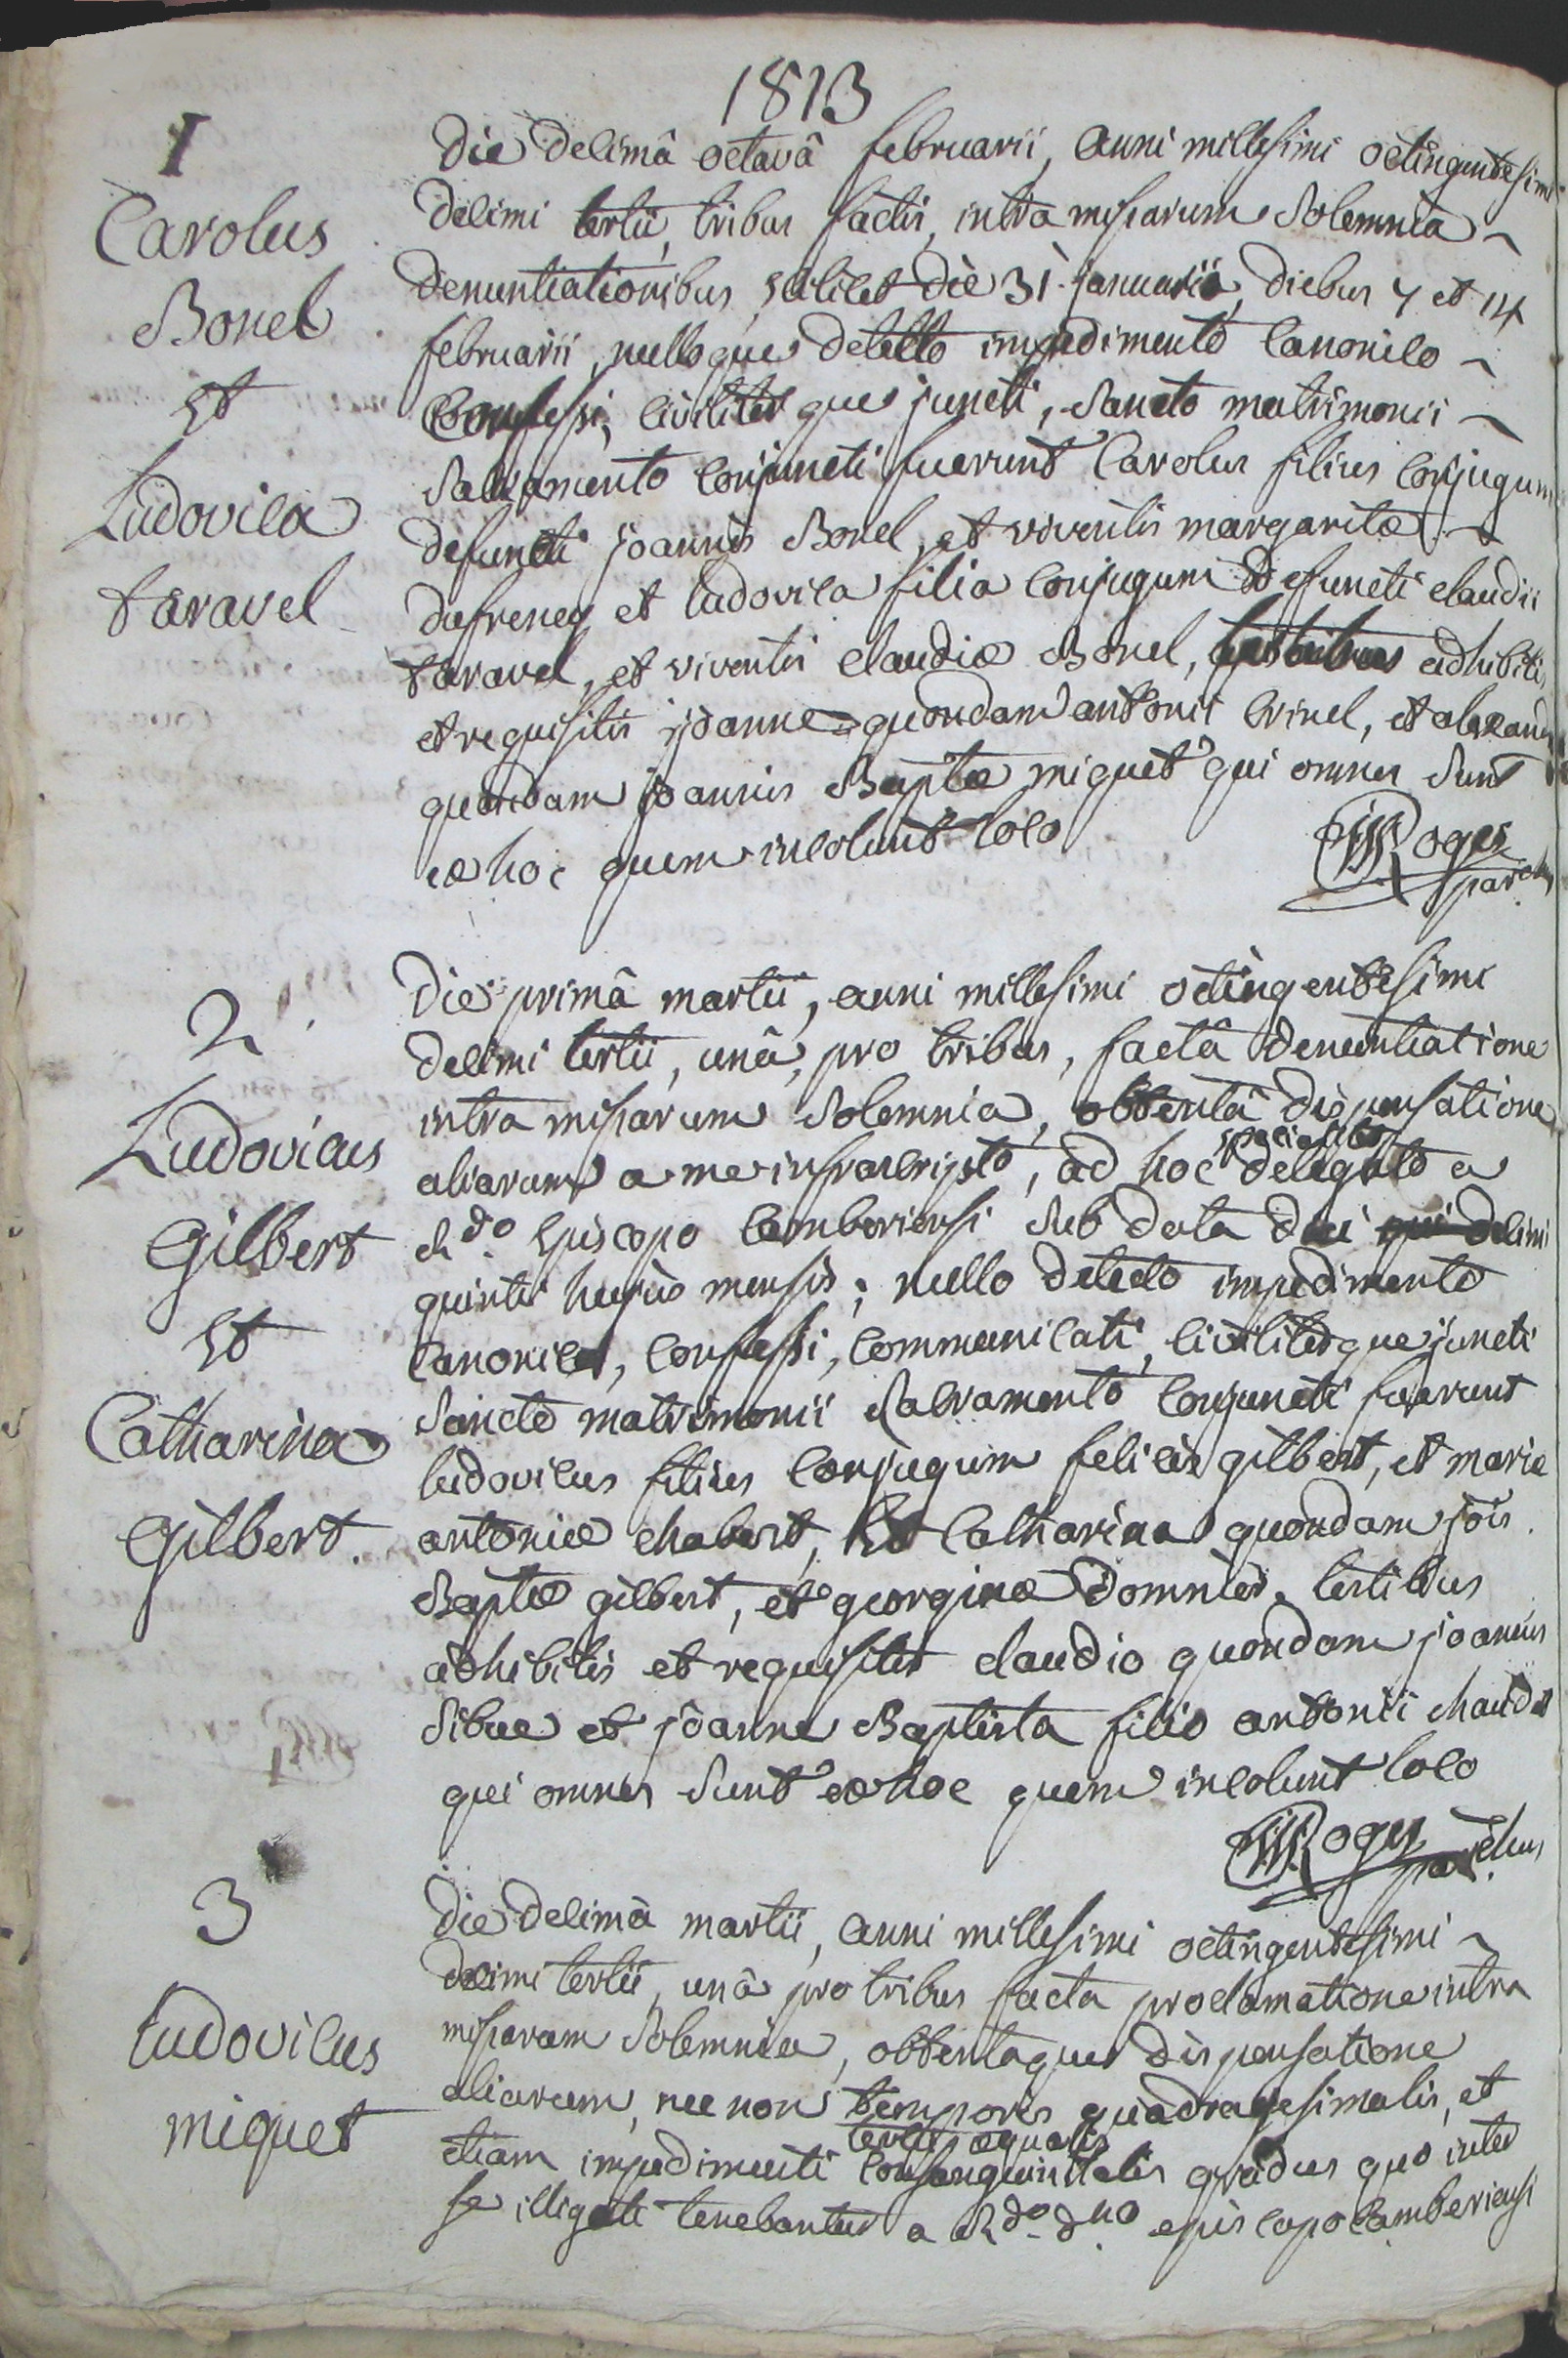 1813
1
Carolus
Bonel
Et
Ludovica
taravel
Die decimâ octavâ februarii, anni millesimi octingentesimi
decimi tertii, tribus factis, intra missarum solemnia
denuntiationibus, scilicet die 31 januarii, diebus 7 et 14
februarii, nulloque detecto impedimento canonico
confessi, civiliterque juncti, sancto matrimonii
sacramento conjuncti fuerunt Carolus filius conjugum
defuncti joannis Bonel, et viventis margaritæ
dufreney et ludovica filia conjugum defuncti claudii
taravel, et viventis claudiæ Bonel, testibus adhibitis
et requisitis joanne quondam antonii crinel, et alexand
quondam joannis Baptæ miquet qui omnes sunt
ex hoc quem incolunt loco
Roges
parchus
2
Ludovicus
Gilbert
Et
Catharina
Gilbert.
Die primâ martii, anni millesimi octingentesimi
decimi tertii, unâ, pro tribus, factâ denuntiatione
intra missarum solemnia, obtentâ dispensatione
aliarum a me infrascripto, ad hoc specialiter delegato a
Rdo. Episcopo camberiensi sub data diei decimi
quinti hujus mensis; nullo detecto impedimento
canonico, confessi, communicati, civiliterque juncti
sancto matrimonii sacramento conjuncti fuerunt
ludovicus filius conjugum felicis gilbert, et mariæ
antoniæ chabert, Et Catharina quondam jois
Baptæ gilbert, et georginæ domnier. testibus
adhibitis et requisitis claudio quondam joannis
sibue et joanne Baptista filio antonii chaudet
qui omnes sunt ex hoc quem incolunt loco
Roges
parchus
3
ludovicus
miquet
Die decimâ martii, anni millesimi octingentesimi
decimi tertii, unâ pro tribus facta proclamatione intra
missarum solemnia, obtentaque dispensatione
aliarum, nec non temporis quadragesimalis, et
etiam impedimenti tertii æqualis consanguinitatis gradus quo inter
se illigati tenebantur a Rdo. dno. episcopo camberiensi